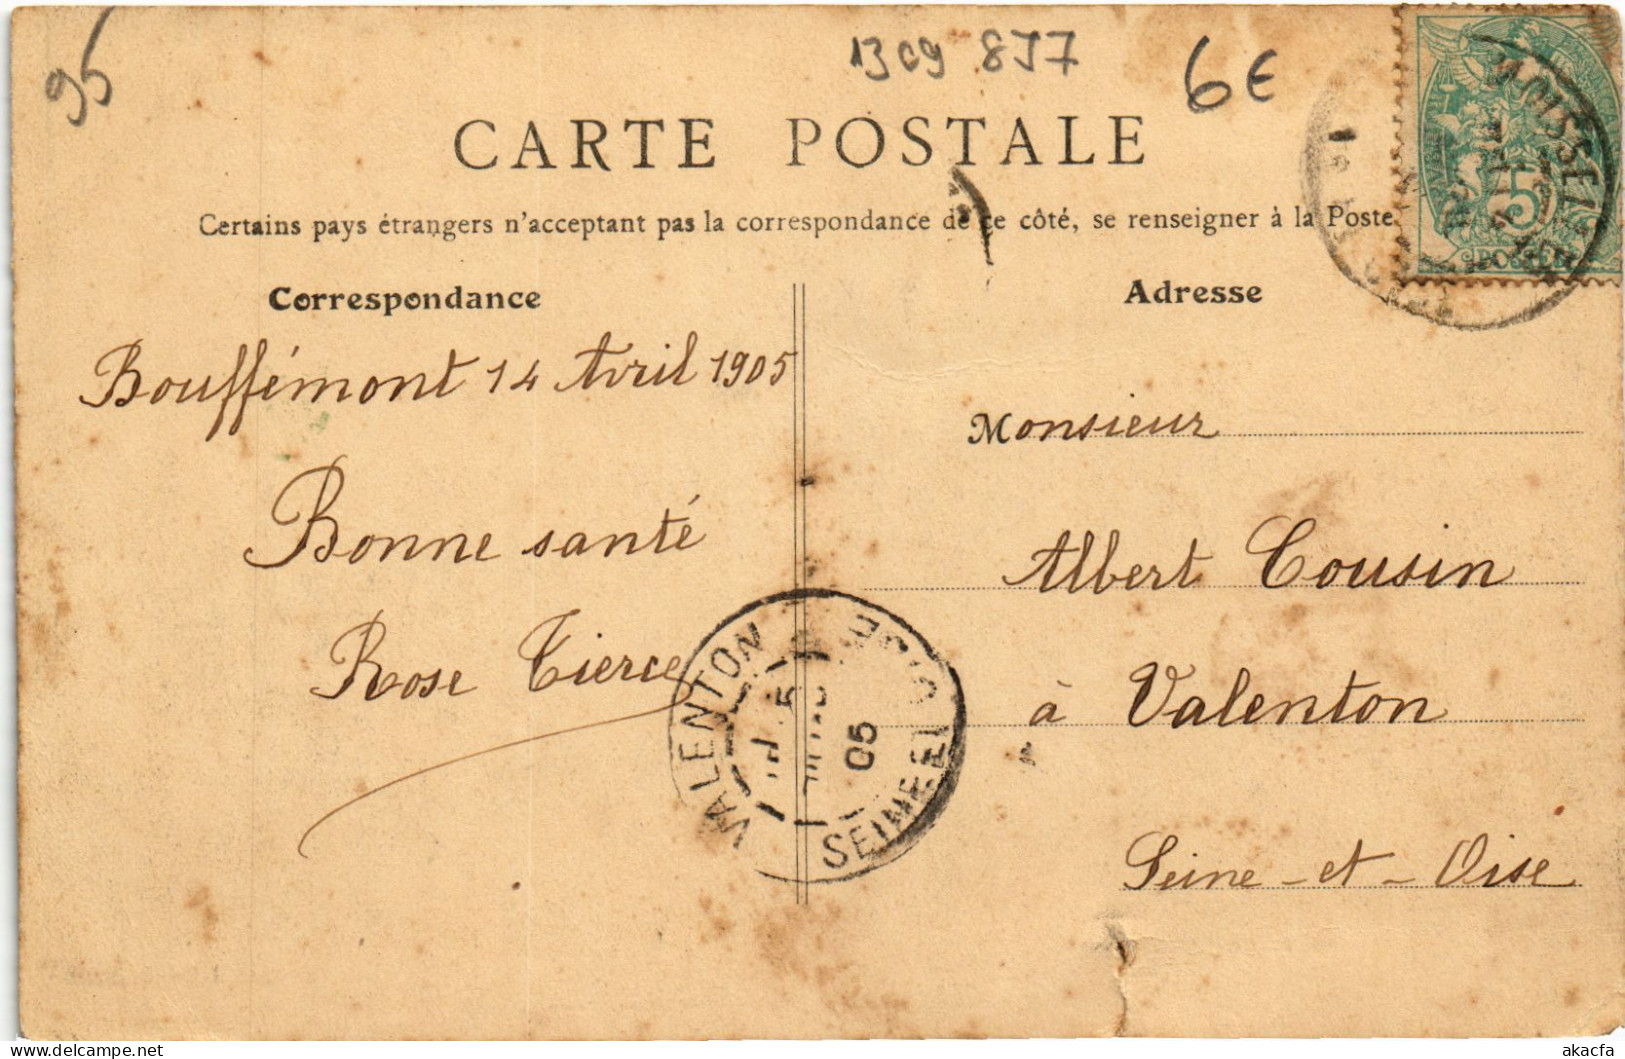 95
1309 857
6€
CARTE POSTALE
Certains pays étrangers n'acceptant pas la correspondance de ce côté, se renseigner à la Poste
Correspondance
Bouffémont 14 Avril 1905
Bonne santé
Rose Tierce
Adresse
Monsieur
Albert Cousin
à Valenton
Seine-et-Oise
VALENTON
05
SEINE ET OISE
MOISSELLES
5
POSTES
akacfa